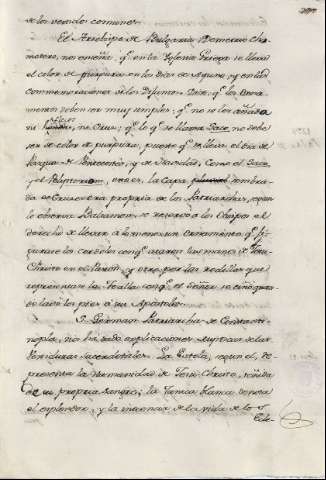 de los vasos comunes.
El Arzobispo de Bulgaria Demetrio Cho-
mateno, nos enseña, q.e en la Iglesia Griega se lleva
el color de purpura en los dias de Ayuno, y en las
Commemoraciones de los Difuntos. Dice, q.e los Orna-
mentos deben ser muy simples; q.e no se les añada
ni, ni Cruz; q.e lo q.e se llama Saco, no debe
ser de color de purpura, puesto q.e se lleva el dia de
Pasqua, de Pentecostés, y de Navidad, como el Saco,
y el Polystaurion, era es, la Capa sembra-
da de Cruces era propria de los Patriarchas, segun
lo observa Balsamon. Se reservó a los Obispos el
derecho de llevar a lo menos un ornamento, q.e fi-
gurase los cordeles con q.e ataron las manos de Jesu-
Christo en el Huerto, y otro por las rodillas que
representase la Toalla con q.e el Señor se ciñó quan-
do labó los pies a sus Apostoles.
S. German Patriarcha de Constanti-
nopla, nos ha dado explicaciones mysticas de las
Vestiduras Sacerdotales. La Estola, segun el, re-
presenta la Humanidad de Jesu-Christo, teñida
de su propria sangre; la Tunica blanca denota
el esplendor, y la inocencia de la vida de los
Ecle-